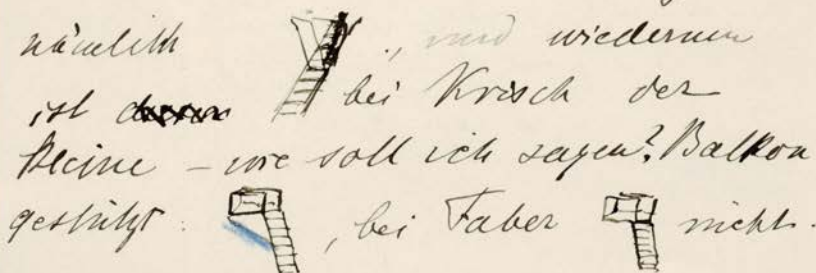 nämlich , und wiederum
ist bei Krisch der
kleine – wie soll ich sagen? Balkon
gestützt: , bei Faber nicht.